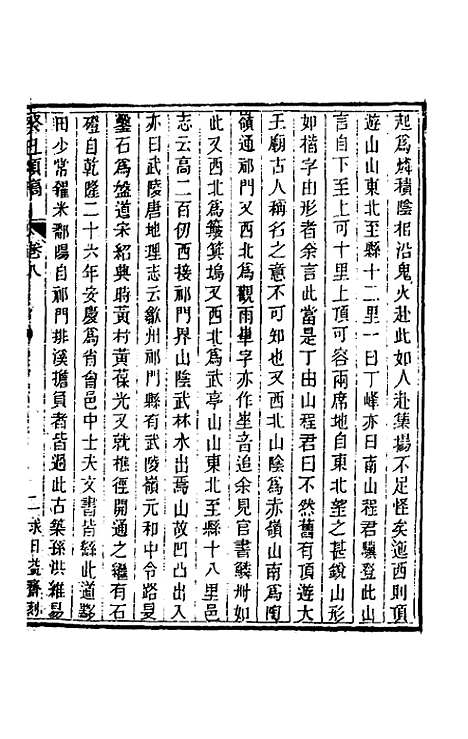 起爲燐積陰相沿鬼火赴此如人赴集場不足怪矣迤西則頂
遊山山東北至縣十二里一曰丁峰亦曰南山程君驤登此山
言自下至上可十里上頂可容兩席地自東北望之甚銳山形
如楷字由形者余言此當是丁由山程君曰不然舊有頂遊大
王廟古人稱名之意不可知也又西北山陰爲赤嶺山南爲陶
嶺通祁門又西北爲觀雨嶴字亦作坐音追余見官書鱗册如
此又西北爲簸箕塢又西北爲武亭山山東北至縣十八里邑
志云高二百仞西接祁門界山陰武林水出焉山故凹凸出下
亦曰武陵唐地理志云歙州祁門縣有武陵嶺元和中令路旻
鑿石爲盤道宋紹興時黃村黃葆光又就樵徑開通之繼有石
磴自乾隆二十六年安慶爲省會邑中士大夫文書皆繇此道鄰
田少常糴米鄱陽自祁門排溪擔負者皆過此古築孫洪維易
癸巳類稿 卷八 二 求日益齋刻